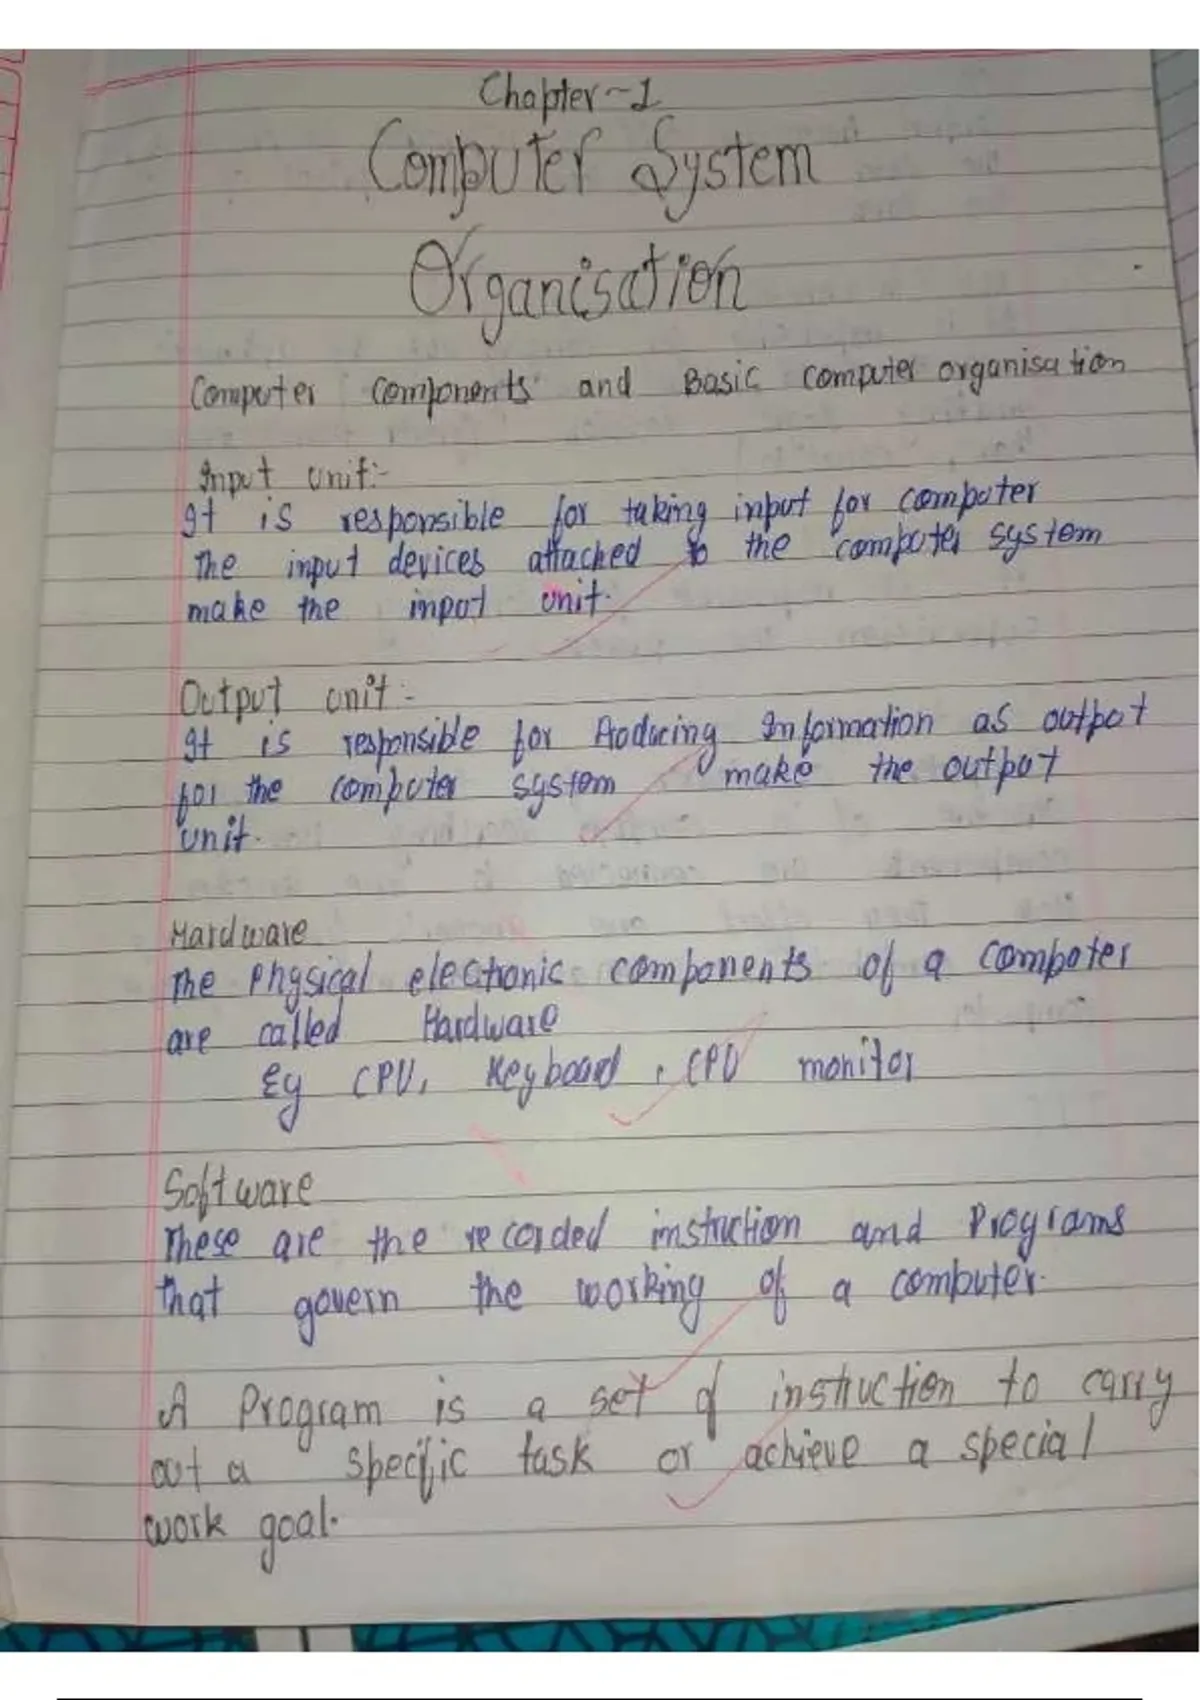 Chapter-1
Computer System
Organisation
Computer Components and Basic computer organisation
Input unit:-
It is responsible for taking input for computer
The input devices attached to the computer system
make the input unit.
Output unit:-
It is responsible for Producing Information as output
for the computer system make the output
unit.
Hardware
The Physical electronic components of a computer
are called Hardware
Eg CPU, Keyboard, CPU monitor
Software
These are the recorded instruction and Programs
that govern the working of a computer.
A Program is a set of instruction to carry
out a specific task or achieve a special
work goal.